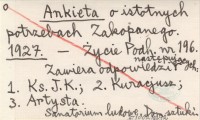 Ankieta o istotnych
potrzebach Zakopanego.
1927. – Życie Podh. nr. 196.
Zawiera odpowiedzi następujących:
1. Ks. J. K.; 2. Kuracjusz;
3. Artysta.
Sanatorium ludowe, Dom sztuki.